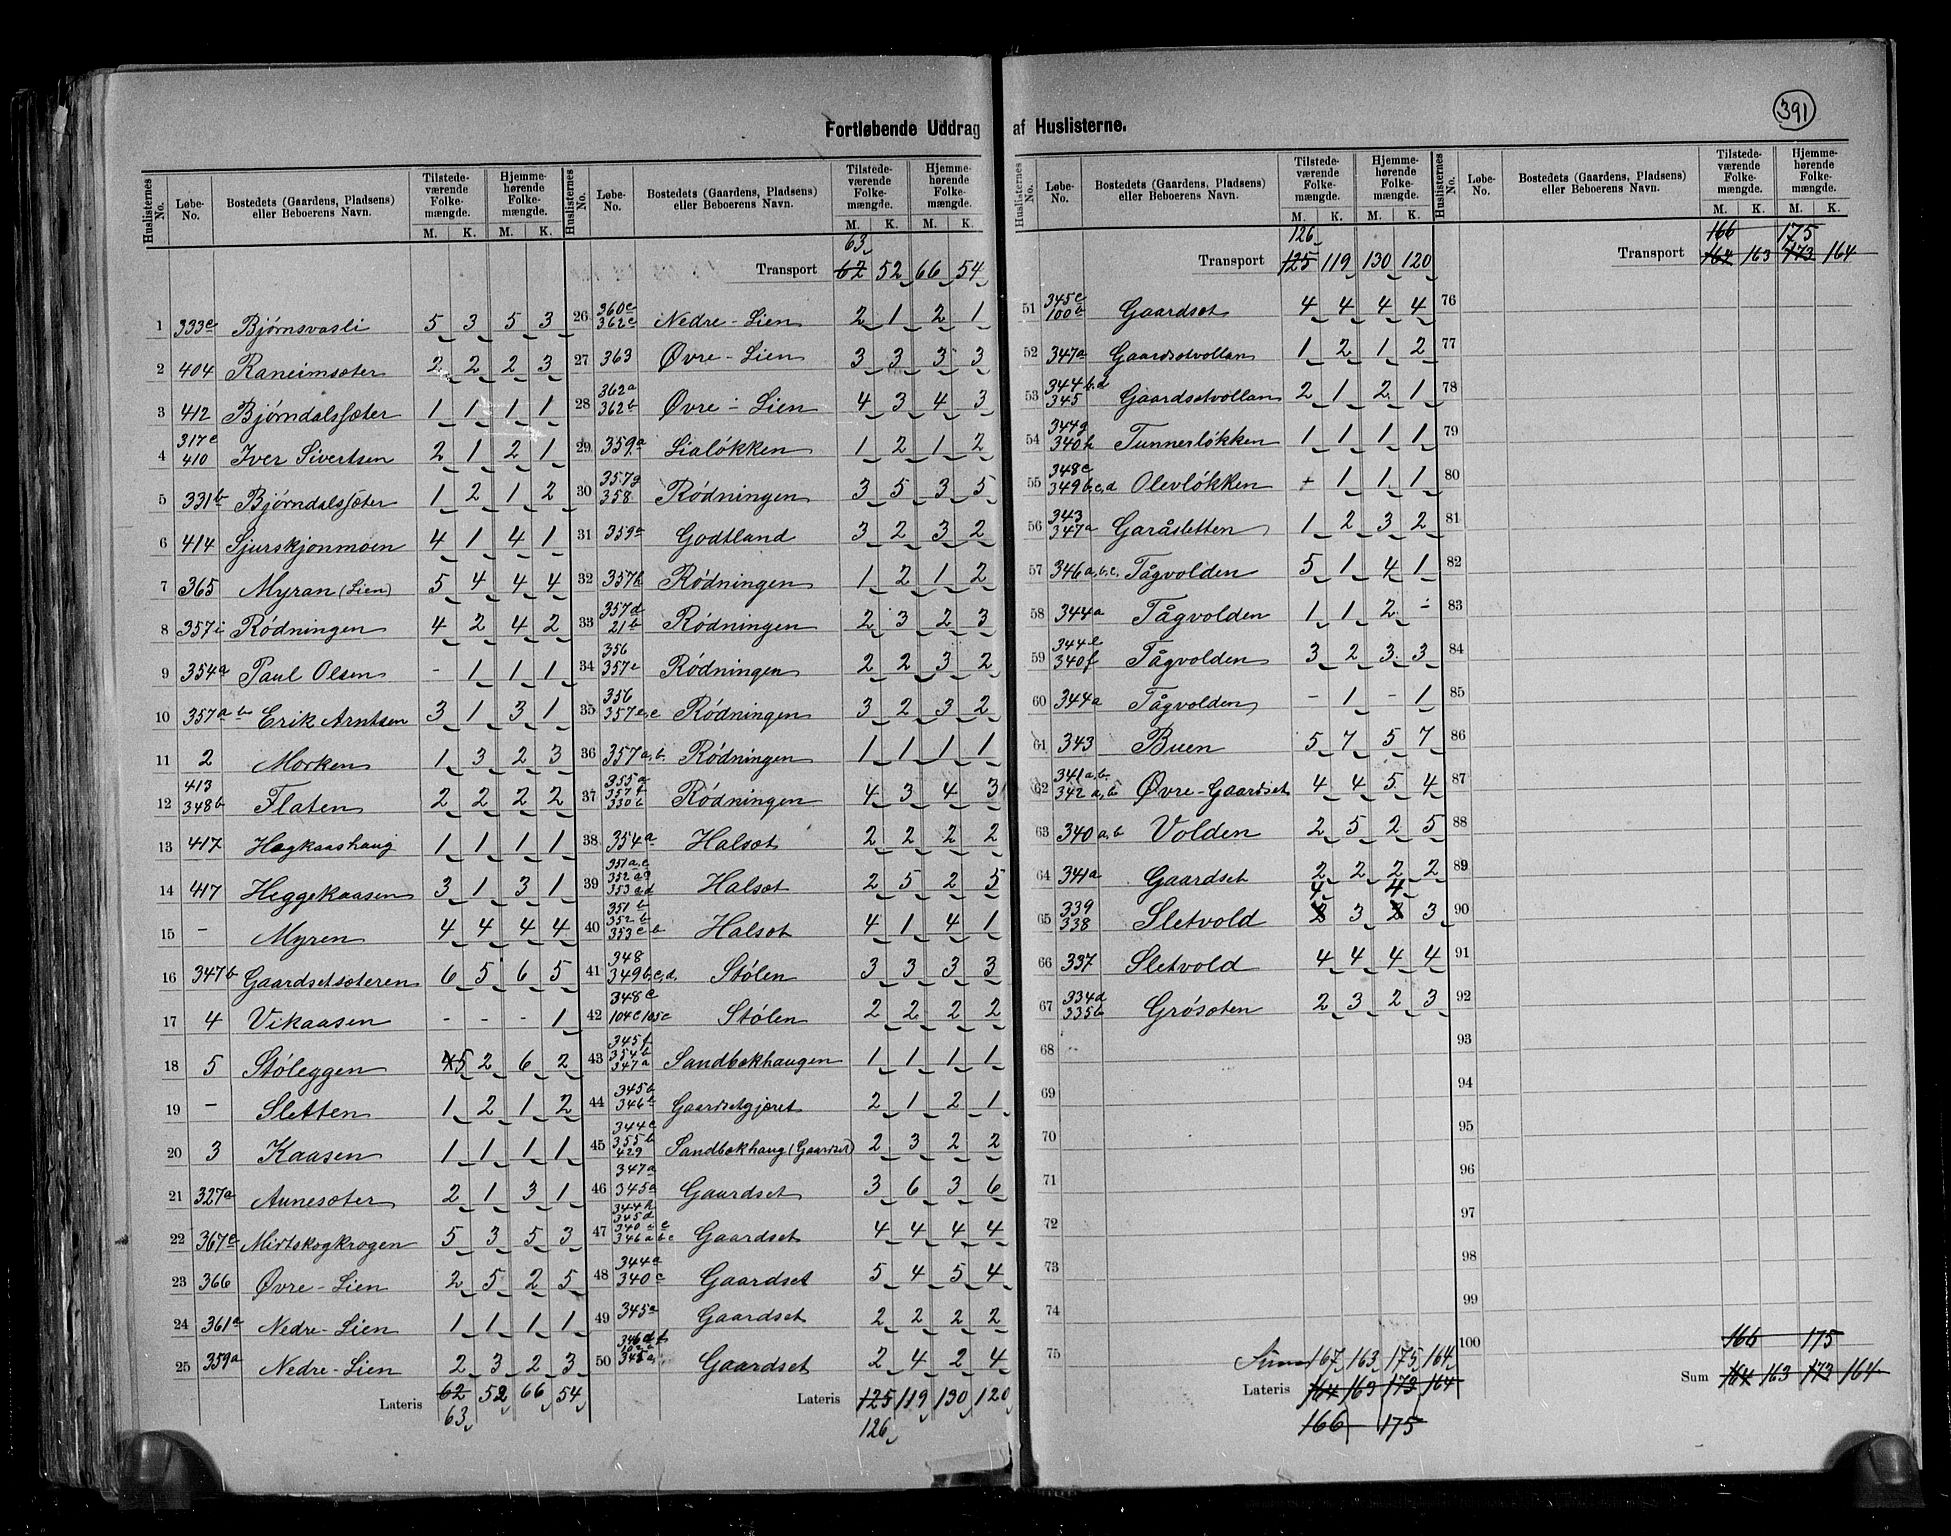 391
Fortløbende Uddrag af Huslisterne.
Huslisternes No. | Løbe-No. | Bostedets (Gaardens, Pladsens) eller Beboerens Navn. | Tilstedeværende Folkemængde. M. K. | Hjemmehørende Folkemængde. M. K.
1 333c Bjørnsvasli 5 3 5 3
2 404 Raneimsæter 2 2 2 3
3 412 Bjørndalsfæter 1 1 1 1
4 317c 410 Iver Sivertsen 2 1 2 1
5 331b Bjørndalsfæter 1 2 1 2
6 414 Sjurskjønmoen 4 1 4 1
7 365 Myran (Lien) 5 4 4 4
8 357i Rødningen 4 2 4 2
9 354a Paul Olsen - 1 1 1
10 357a b Erik Arntsen 3 1 3 1
11 2 Morken 1 3 2 3
12 413 348b Flaten 2 2 2 2
13 417 Hægkaashaug 1 1 1 1
14 417 Heggekaasen 3 1 3 1
15 - Myren 4 4 4 4
16 347b Gaardsetsæteren 6 5 6 5
17 4 Vikaasen - - - 1
18 5 Støleggen 5 2 6 2
19 - Sletten 1 2 1 2
20 3 Kaasen 1 1 1 1
21 327a Aunesæter 2 1 3 1
22 367c Mirtskogkrogen 5 3 5 3
23 366 Øvre-Lien 2 5 2 5
24 361a Nedre-Lien 1 1 1 1
25 359a Nedre-Lien 2 3 2 3
Lateris 62 52 66 54
63
Huslisternes No. | Løbe-No. | Bostedets (Gaardens, Pladsens) eller Beboerens Navn. | Tilstedeværende Folkemængde. M. K. | Hjemmehørende Folkemængde. M. K.
63
Transport 62 52 66 54
26 360c 362c Nedre-Lien 2 1 2 1
27 363 Øvre-Lien 3 3 3 3
28 362a 362b Øvre-Lien 4 3 4 3
29 359a Lialøkken 1 2 1 2
30 357g 358 Rødningen 3 5 3 5
31 359a Godtland 3 2 3 2
32 357h Rødningen 1 2 1 2
33 357d 21b Rødningen 2 3 2 3
34 356 357c Rødningen 2 2 3 2
35 356 357e,c Rødningen 3 2 3 2
36 357a,b. Rødningen 1 1 1 1
37 355a 357f 330b Rødningen 4 3 4 3
38 354a Halsæt 2 2 2 2
39 351a,c 352a,g 353a,d Halsæt 2 5 2 5
40 351b 352b 353c b Halsæt 4 1 4 1
41 348 349b,c,d. Stølen 3 3 3 3
42 348c 104c 105c Stølen 2 2 2 2
43 345f 354b 347a Sandbækhaugen 1 1 1 1
44 345b 346b Gaardsetgjæret 2 1 2 1
45 344c 355b 429 Sandbækhaug (Gaardset) 2 3 2 2
46 347a 345a Gaardset 3 6 3 6
47 344h 345d 340 346a Gaardset 4 4 4 4
48 344c 340c Gaardset 5 4 5 4
49 345a Gaardset 2 2 2 2
50 346d Gaardset 2 4 2 4
Lateris 125 119 130 120
126
Huslisternes No. | Løbe-No. | Bostedets (Gaardens, Pladsens) eller Beboerens Navn. | Tilstedeværende Folkemængde. M. K. | Hjemmehørende Folkemængde. M. K.
126
Transport 125 119 130 120
51 345c 100b Gaardset 4 4 4 4
52 347a Gaardsetvollan 1 2 1 2
53 344b.d 345 Gaardsetvollan 2 1 2 1
54 344g 340h Tunnerløkken 1 1 1 1
55 348c 349b,c,d Olevløkken + 1 1 1
56 343 347a Garåsletten 1 2 3 2
57 346a,b.c. Tågvolden 5 1 4 1
58 344a Tågvolden 1 1 2 -
59 344e 340f Tågvolden 3 2 3 3
60 344a Tågvolden - 1 - 1
61 343 Buen 5 7 5 7
62 341a,b. 342a,b Øvre-Gaardset 4 4 5 4
63 340a,b Volden 2 5 2 5
64 341a Gaardset 2 2 2 2
65 339 338 Sletvold 4 3 4 3
66 337 Sletvold 4 4 4 4
67 334d 335b Grøsæten 2 3 2 3
68
69
70
71
72
73
74
75
Summa 167 163 175 164
Lateris 164 163 173 164
166 175
Huslisternes No. | Løbe-No. | Bostedets (Gaardens, Pladsens) eller Beboerens Navn. | Tilstedeværende Folkemængde. M. K. | Hjemmehørende Folkemængde. M. K.
166 175
Transport 164 163 173 164
76
77
78
79
80
81
82
83
84
85
86
87
88
89
90
91
92
93
94
95
96
97
98
99
100
166 175
Sum 164 163 173 164